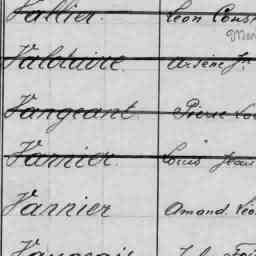 Vallier. Léon Const
Valduire. Arsène Jn
Vangeant Pierre Lou
Varnier. Louis Jean
Varnier Amand Léo